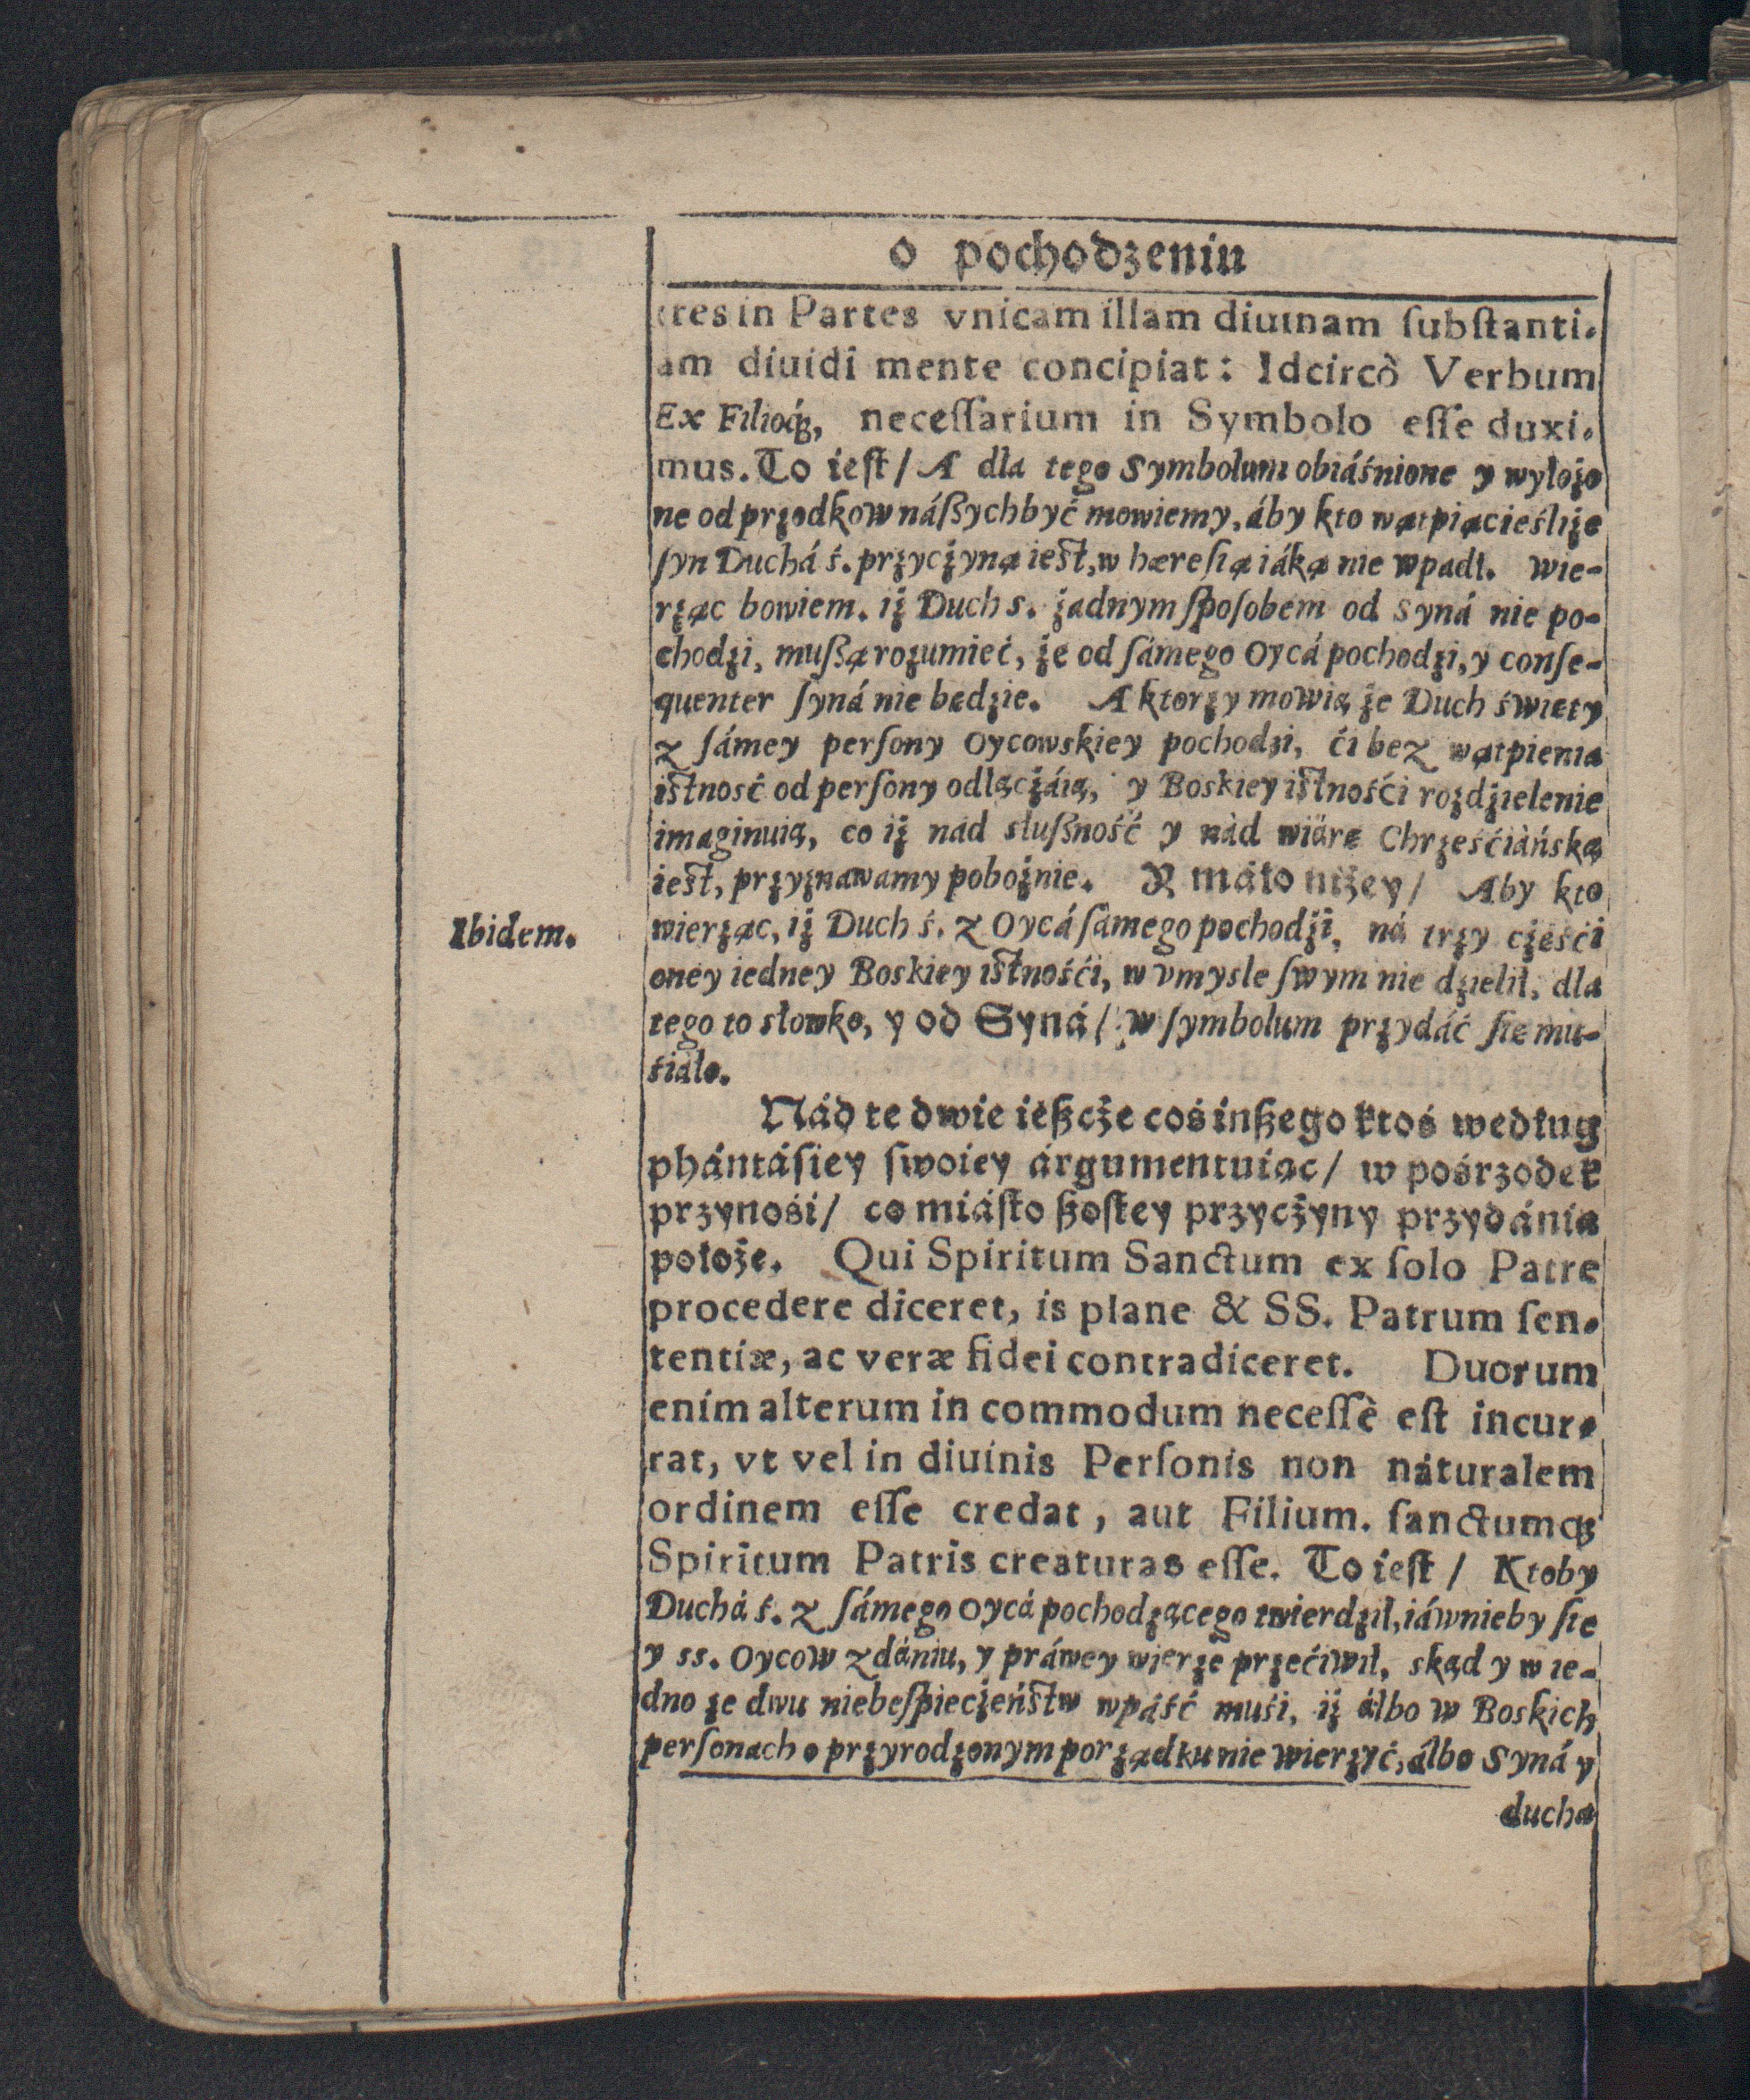 o pochodzeniu
tres in Partes vnicam illam diuinam ſubſtanti-
am diuidi mente concipiat: Idcircò Verbum
Ex Filioq́ꝫ, neceſſarium in Symbolo eſſe duxi-
mus. To ieſt / A dla tego Symbolum obiáśnione y wyłożo
ne od przodkow náßych być mowiemy, áby kto wątpiąc ieśliże
ſyn Duchá ś. przycżyną ieſt, w hæreſią iáką nie wpadł. Wie-
rząc bowiem. iż Duch s. żadnym ſpoſobem od Syná nie po-
chodzi, mußą rozumieć, że od ſámego Oycá pochodzi, y conſe-
quenter ſyná nie będzie. A ktorzy mowią że Duch święty
z ſámey perſony Oycowskiey pochodzi, ći bez wątpienia
iſtnosć od perſony odłącżáią, y Boskiey iſtnośći rozdźielenie
imaginuią, co iż nád słußność y nád wiárę Chrześćiáńską
ieſt, przyznawamy pobożnie. Y máło niżey / Aby kto
Ibidem.
wierząc, iż Duch ś. z Oycá ſámego pochodźi, ná trzy cżęśći
oney iedney Boskiey iſtnośći, w vmysle ſwym nie dzielił, dla
tego to słowko, y od Syná / w ſymbolum przydáć ſię mu-
śiáło.
Nád te dwie ießcże coś inßego ktoś według
phántásiey ſwoiey árgumentuiąc / w pośrzodek
przynośi / co miáſto ßoſtey przycżyny przydánia
położę. Qui Spiritum Sanctum ex ſolo Patre
procedere diceret, is plane & SS. Patrum ſen-
tentiæ, ac veræ fidei contradiceret. Duorum
enim alterum in commodum neceſſè eſt incur-
rat, vt vel in diuinis Perſonis non náturalem
ordinem eſſe credat, aut Filium. ſanctumqꝫ
Spiritum Patris creaturas eſſe. To ieſt / Ktoby
Duchá ś. z ſámego Oycá pochodzącego twierdził, iáwnieby ſię
y ss. Oycow zdániu, y práwey wierze przećiwił, skąd y w ie-
dno ze dwu niebeſpiecżeńſtw wpáść muśi, iż álbo w Boskich
perſonach o przyrodzonym porządku nie wierzyć, álbo Syná y
ducha